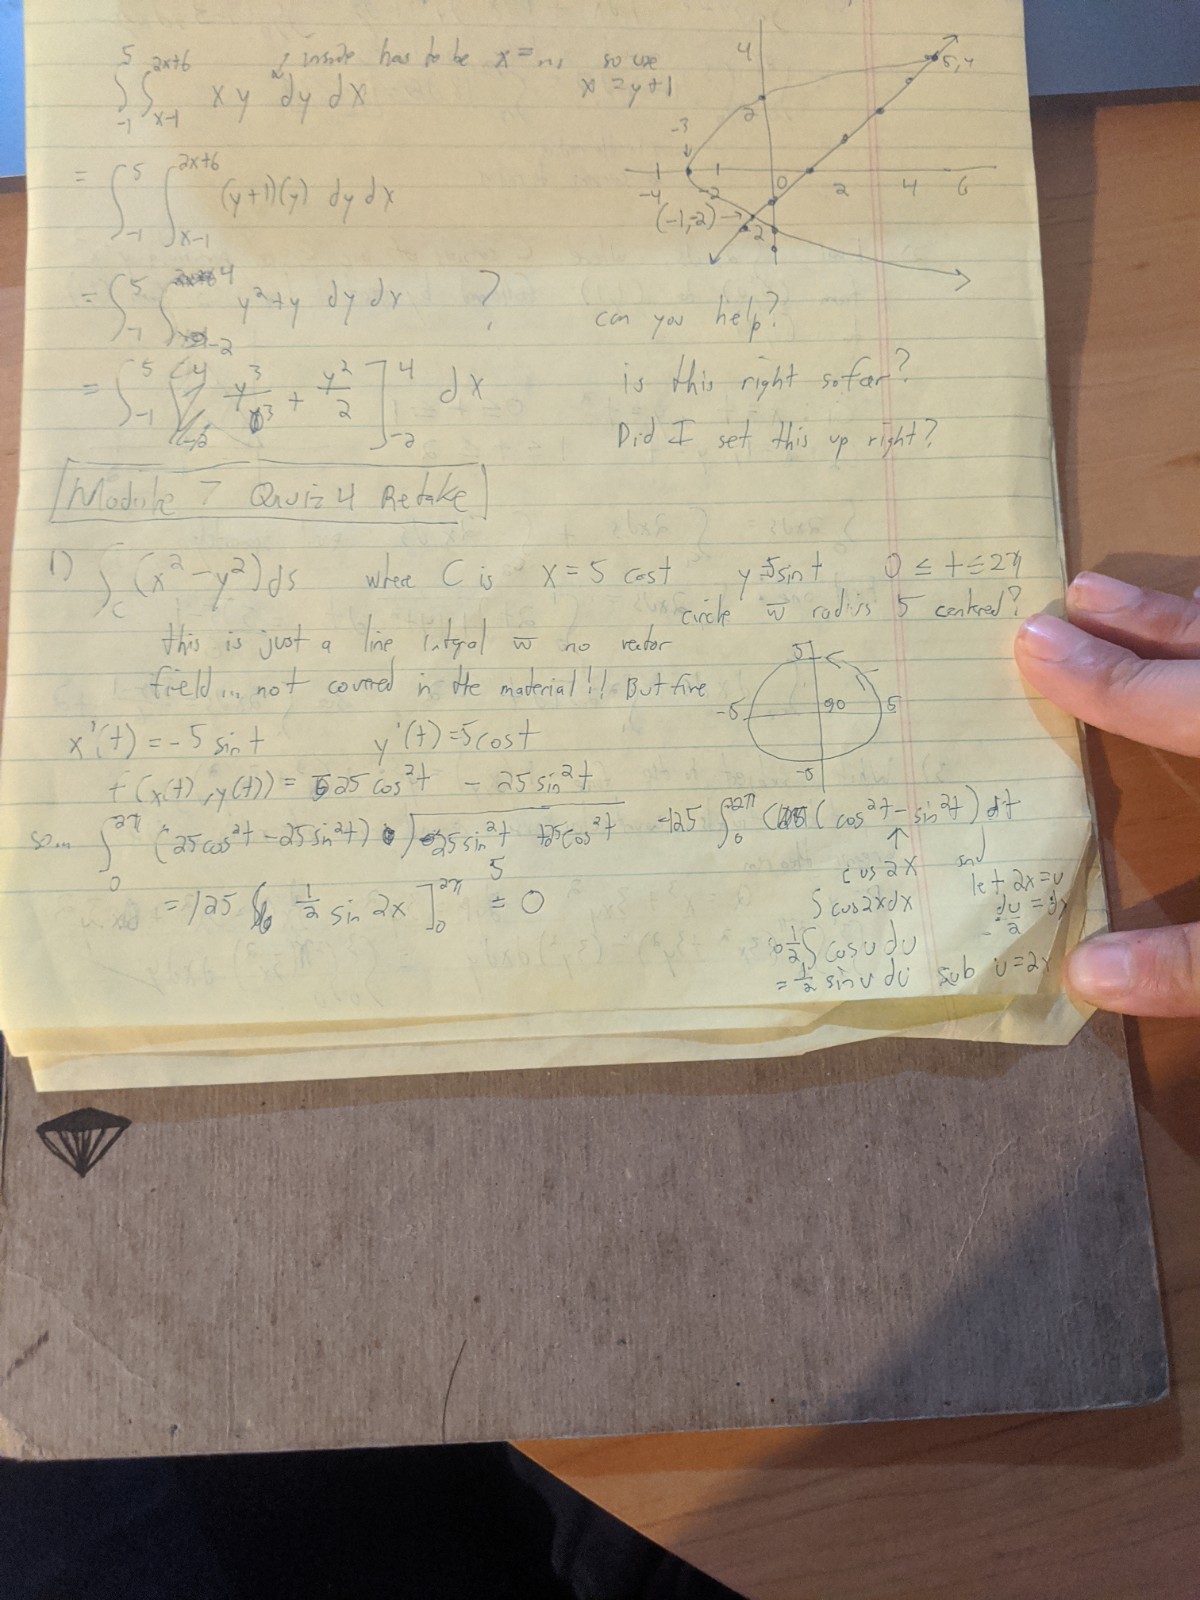 ∫₋₁⁵ ∫ₓ₋₁²ˣ⁺⁶ x y dy dx
inside has to be x = n, so use
x = y+1
= ∫₋₁⁵ ∫ₓ₋₁²ˣ⁺⁶ (y+1)(y) dy dx
4
5,4
2
-3
-4
-2
0
2
4
6
(-1,-2)→
-2
= ∫₋₁⁵ ∫₋₂⁴ y²+y dy dx ?
can you help?
= ∫₋₁⁵ y³/3 + y²/2 ]₋₂⁴ dx
is this right so far?
Did I set this up right?
Module 7 Quiz 4 Retake
1) ∫_C (x²-y²) ds where C is x = 5 cos t y=5sin t 0 ≤ t ≤ 2π
circle w̅ radius 5 centred?
this is just a line intgral w̅ no vector
field... not covered in the material!! But fine
5
-5
5
-5
x'(t) = -5 sin t y'(t) = 5 cos t
f(x(t), y(t)) = 25 cos²t - 25 sin²t
so... ∫₀²π (25cos²t - 25sin²t) √25sin²t +25cos²t = 125 ∫₀²π (cos²t - sin²t) dt
5
cos 2x
let 2x=u
∫cos2xdx
du/2 = dx
= 125 [ 1/2 sin 2x ]₀²π = 0
1/2 ∫ cos u du
= 1/2 sin u du sub u=2x